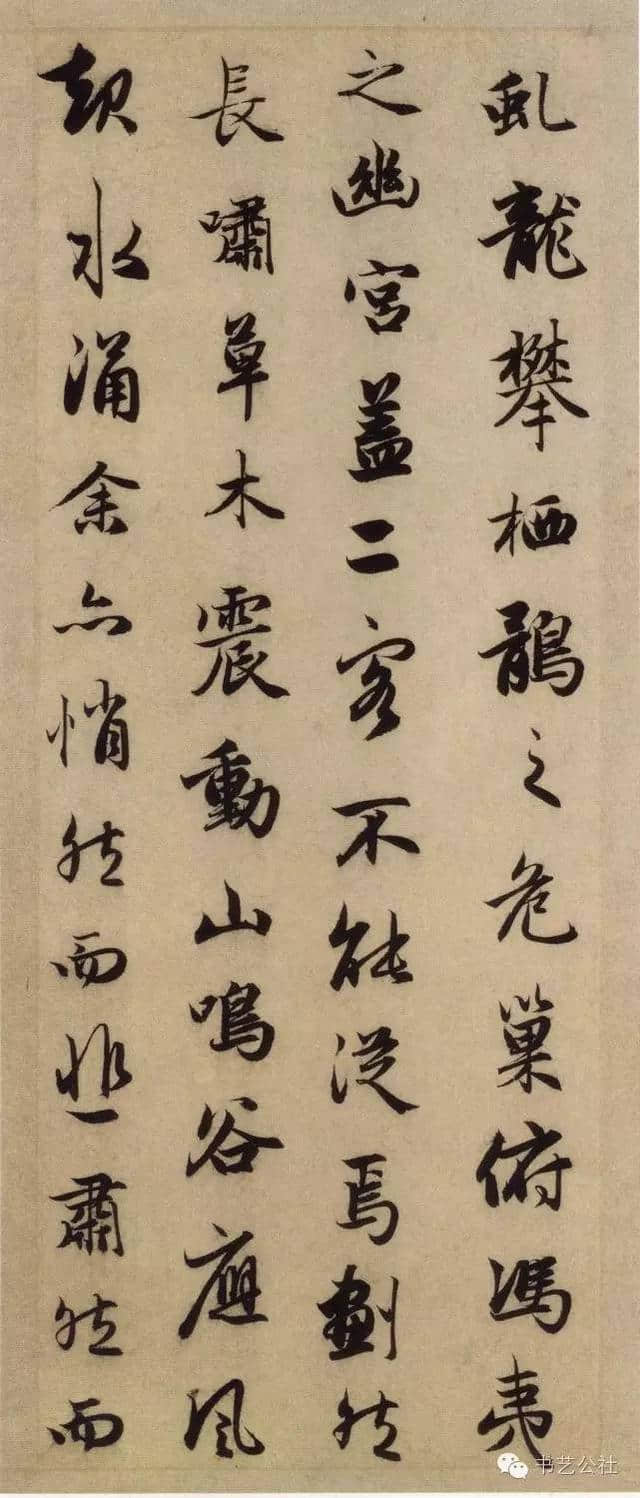 虬龍攀栖鶻之危巢俯馮夷
之幽宮盖二客不能從焉劃然
長嘯草木震動山鳴谷應風
起水涌余亦悄然而悲肅然而
书艺公社